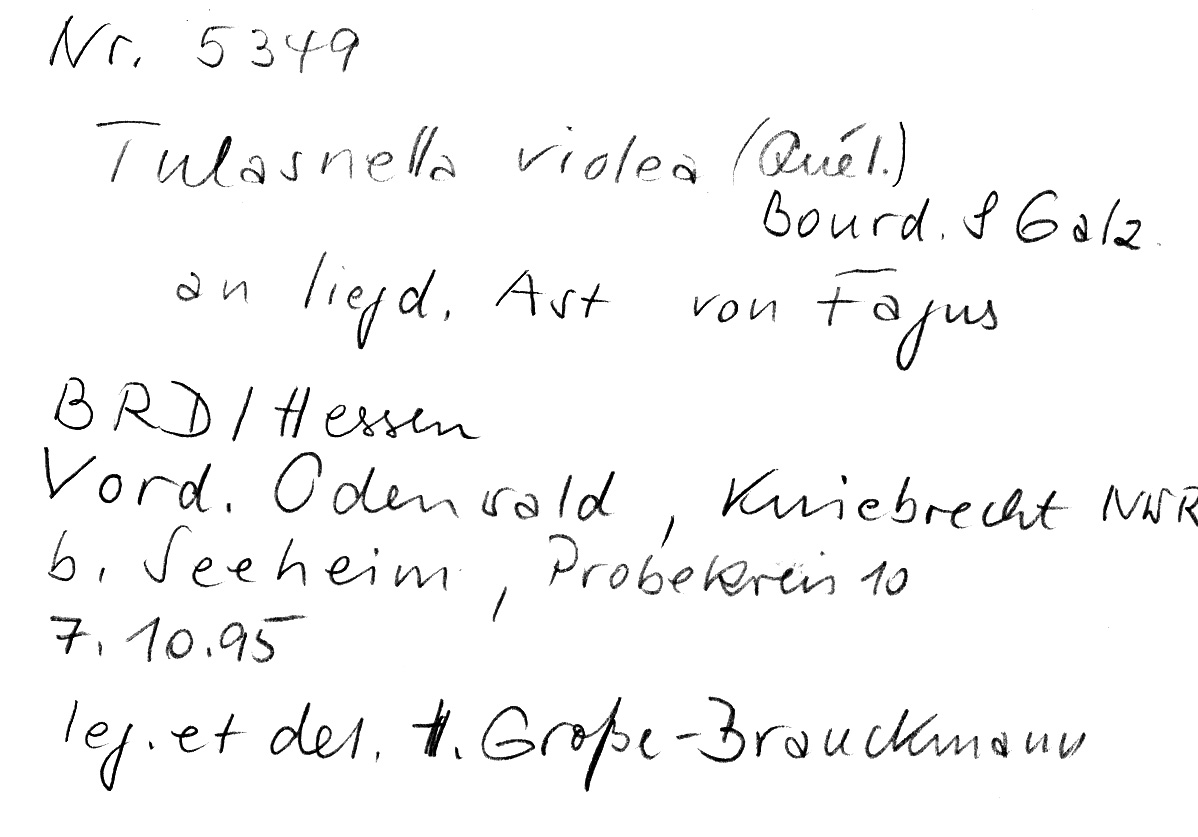 Nr. 5349
Tulasnella violea (Quél.)
Bourd. & Galz.
an liegd. Ast von Fagus
BRD/Hessen
Vord. Odenwald, Kniebrecht NWR
b. Seeheim, Probekreis 10
7.10.95
leg. et det. H. Große-Brauckmann